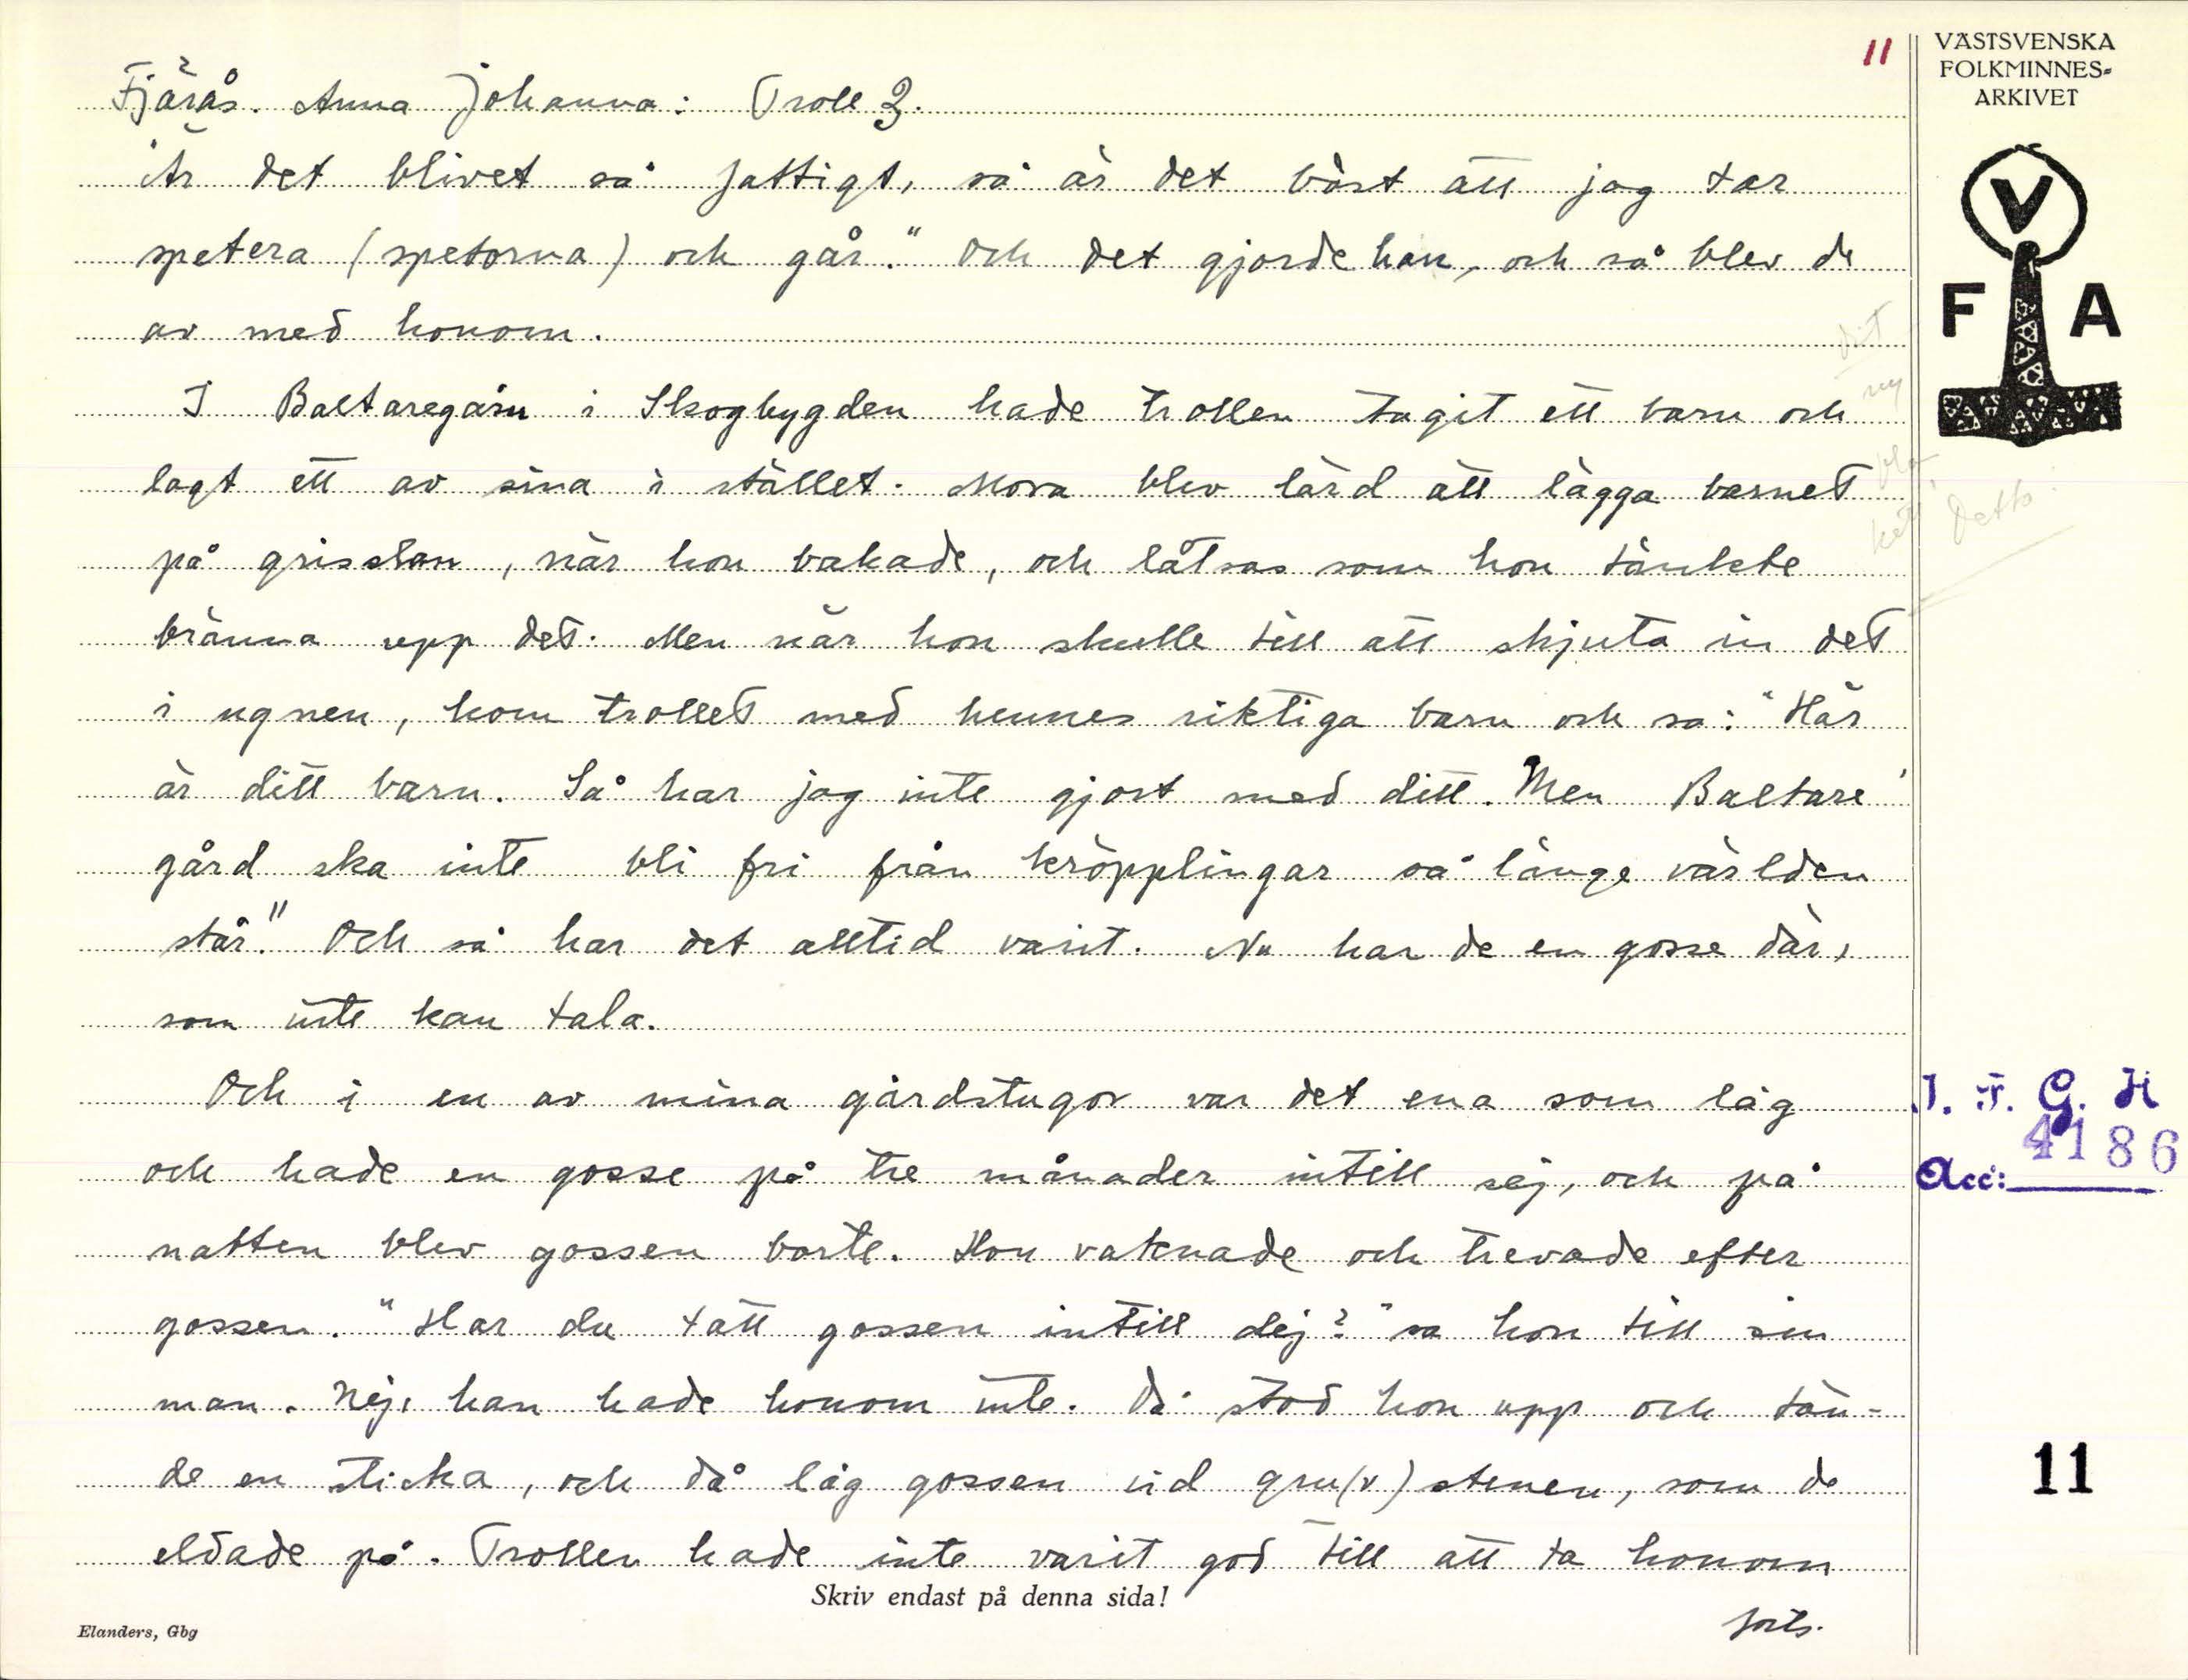 11
VÄSTSVENSKA
FOLKMINNES-
ARKIVET
V
F A
Fjärås. Anna Johanna: Troll 3.
"Är det blivet så fattigt, så är det bäst att jag tar
spetera (spetorna) och går." Och det gjorde han, och så blev de
av med honom.
I Baltaregårn i Skogbygden hade trollen tagit ett barn och
lagt ett av sina i stället. Mora blev lärd att lägga barnet
på grisslan, när hon bakade, och låtsas som hon tänkte
bränna upp det. Men när hon skulle till att skjuta in det
i ugnen, kom trollet med hennes riktiga barn och sa: "Här
är ditt barn. Så har jag inte gjort med ditt. Men Baltare
gård ska inte bli fri från kröpplingar så länge världen
står." Och så har det alltid varit. Nu har de en gosse där,
som inte kan tala.
Och i en av mina gårdstugor var det ena som låg
och hade en gosse på tre månader intill sej, och på
natten blev gossen borte. Hon vaknade och trevade efter
gossen. "Har du tatt gossen intill dej?" sa hon till sin
man. Nej, han hade honom inte. Då stod hon upp och tän-
de en sticka, och då låg gossen vid gru(v)stenen, som de
eldade på. Trollen hade inte varit god till att ta honom
forts.
Detto
I. F. G. H
Acc: 4186
11
Skriv endast på denna sida!
Elanders, Gbg